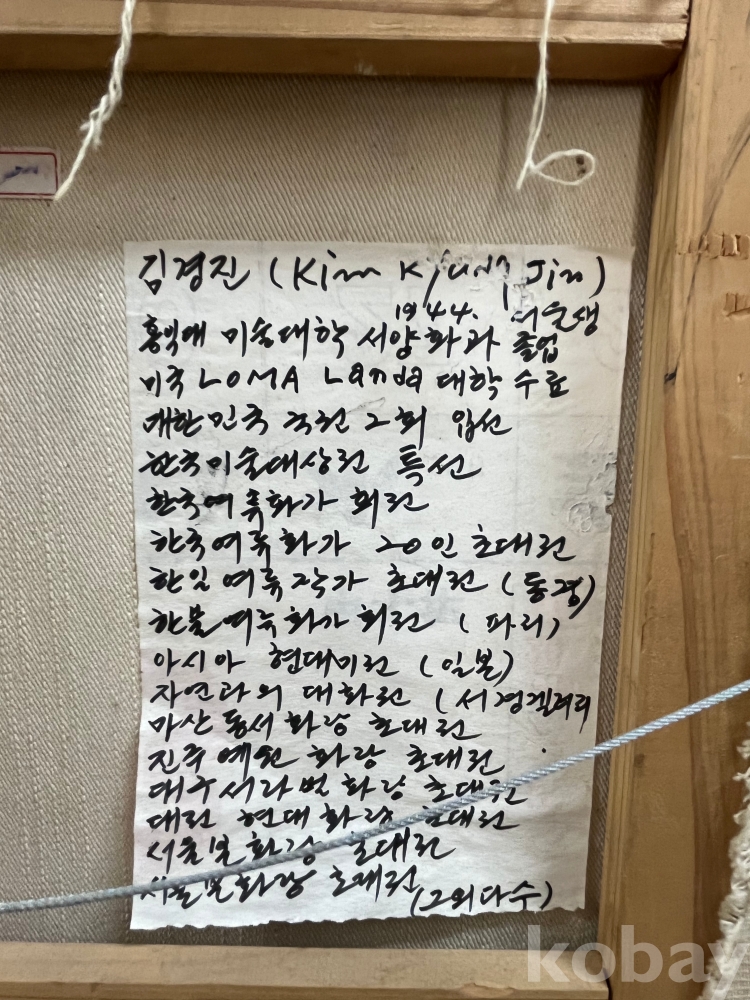 김경진 (Kim Kyung Jin)
1944. 서울생
홍익대 미술대학 서양화과 졸업
미국 LOMA Landa 대학 수료
대한민국 국전 2회 입선
한국미술대상전 특선
한국여류화가 회전
한국여류화가 20인 초대전
한일여류작가 초대전 (동경)
한불여류화가회전 (파리)
아시아 현대미전 (일본)
자연과의 대화전 (서경겔러리
마산 동서화랑 초대전
진주 예원 화랑 초대전
대구서라벌화랑 초대전
대전 현대화랑 초대전
서울 화랑 초대전
서울 화랑 초대전
(그외다수)
kobay